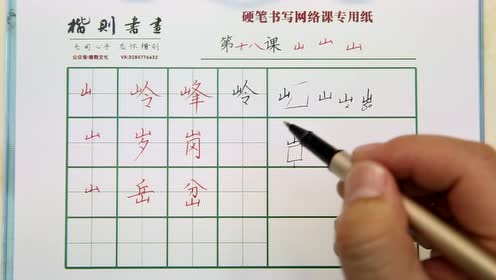 楷则书画 硬笔书写网络课专用纸
无间心手 忘怀楷则 第十八课 山 山 山
公众号:楷则文化 VX:3284776632
山 岭 峰 岭 山 山 山
山 岁 岗 山
山 岳 岔